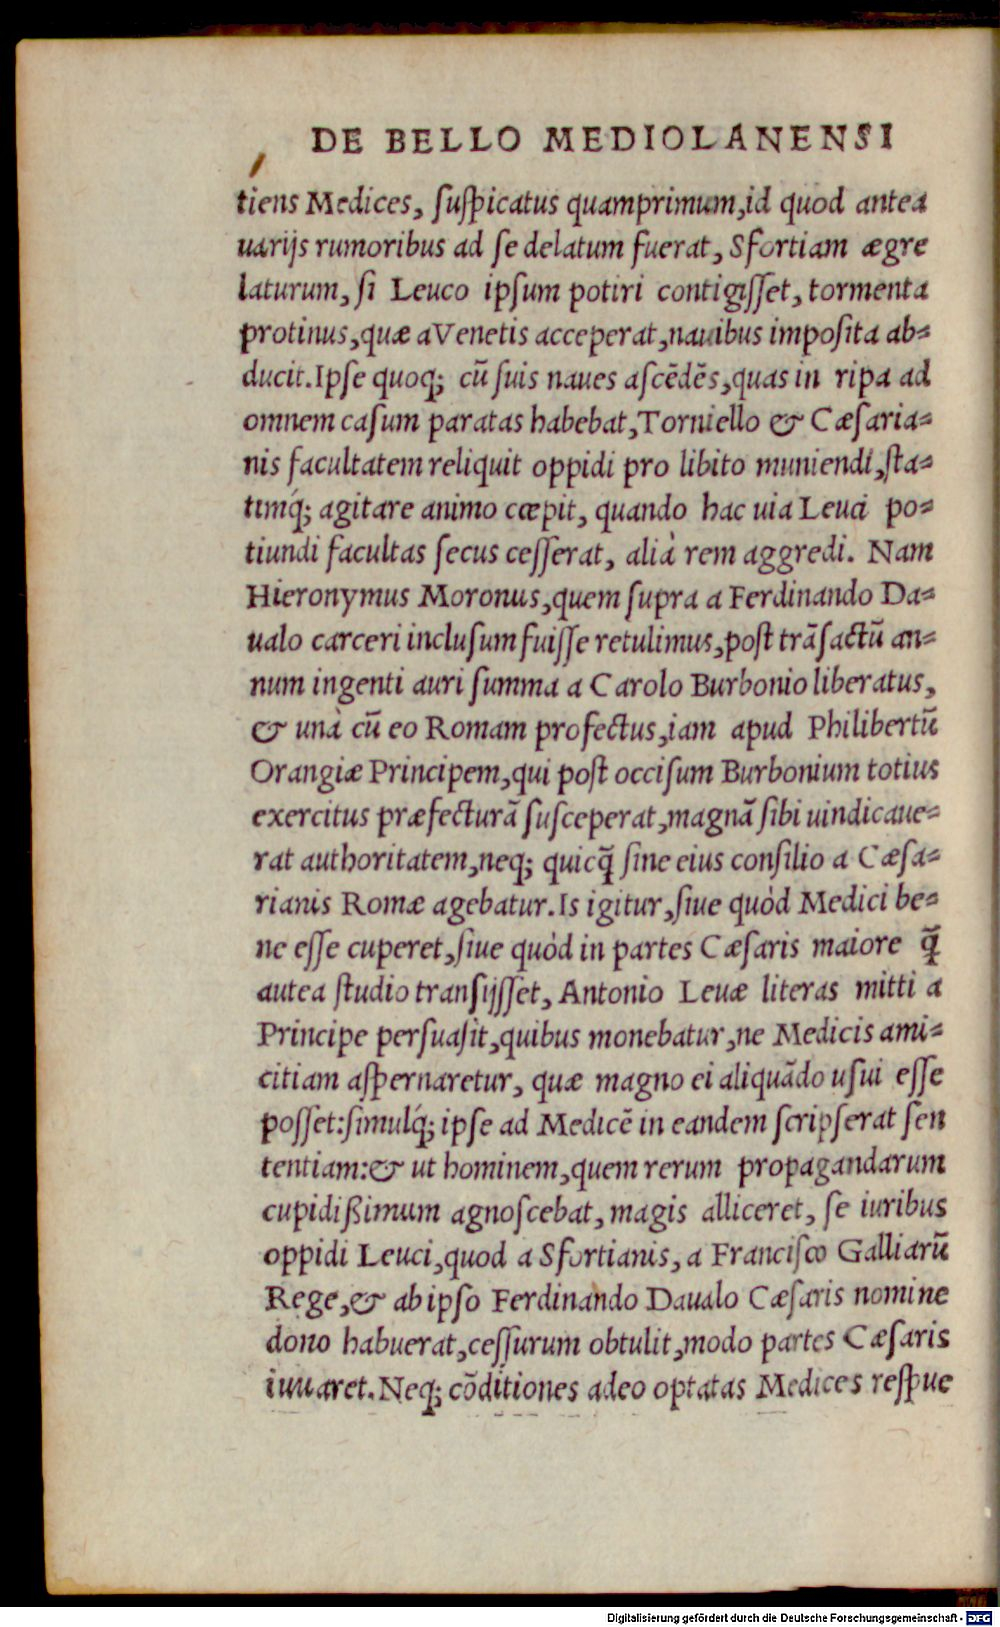 DE BELLO MEDIOLANENSI
tiens Medices, ſuſpicatus quamprimum,id quod antea
uarijs rumoribus ad ſe delatum fuerat, Sfortiam ægre
laturum, ſi Leuco ipſum potiri contigiſſet, tormenta
protinus,quæ aVenetis acceperat,nauibus impoſita ab⸗
ducit.Ipſe quoq; cũ ſuis naues aſcẽdẽs,quas in ripa ad
omnem caſum paratas habebat,Torniello & Cæſaria⸗
nis facultatem reliquit oppidi pro libito muniendi,ſta⸗
timq́; agitare animo cœpit, quando hac uia Leuci po⸗
tiundi facultas ſecus ceſſerat, alià rem aggredi. Nam
Hieronymus Moronus,quem ſupra a Ferdinando Da⸗
ualo carceri incluſum fuiſſe retulimus,poſt trãſactũ an⸗
num ingenti auri ſumma a Carolo Burbonio liberatus,
& unà cũ eo Romam profectus,iam apud Philibertũ
Orangiæ Principem,qui poſt occiſum Burbonium totius
exercitus præfecturã ſuſceperat,magnã ſibi uindicaue⸗
rat authoritatem,neq; quicq̃ ſine eius conſilio a Cæſa⸗
rianis Romæ agebatur.Is igitur,ſiue quòd Medici be⸗
ne eſſe cuperet,ſiue quòd in partes Cæſaris maiore q̃
autea ſtudio tranſijſſet, Antonio Leuæ literas mitti a
Principe perſuaſit,quibus monebatur,ne Medicis ami⸗
citiam aſpernaretur, quæ magno ei aliquãdo uſui eſſe
poſſet:ſimulq́; ipſe ad Medicẽ in eandem ſcripſerat ſen
tentiam:& ut hominem,quem rerum propagandarum
cupidißimum agnoſcebat, magis alliceret, ſe iuribus
oppidi Leuci,quod a Sfortianis, a Franciſco Galliarũ
Rege,& ab ipſo Ferdinando Daualo Cæſaris nomine
dono habuerat,ceſſurum obtulit,modo partes Cæſaris
iuuaret.Neq; cõditiones adeo optatas Medices reſpue
Digitalisierung gefördert durch die Deutsche Forschungsgemeinschaft - DFG